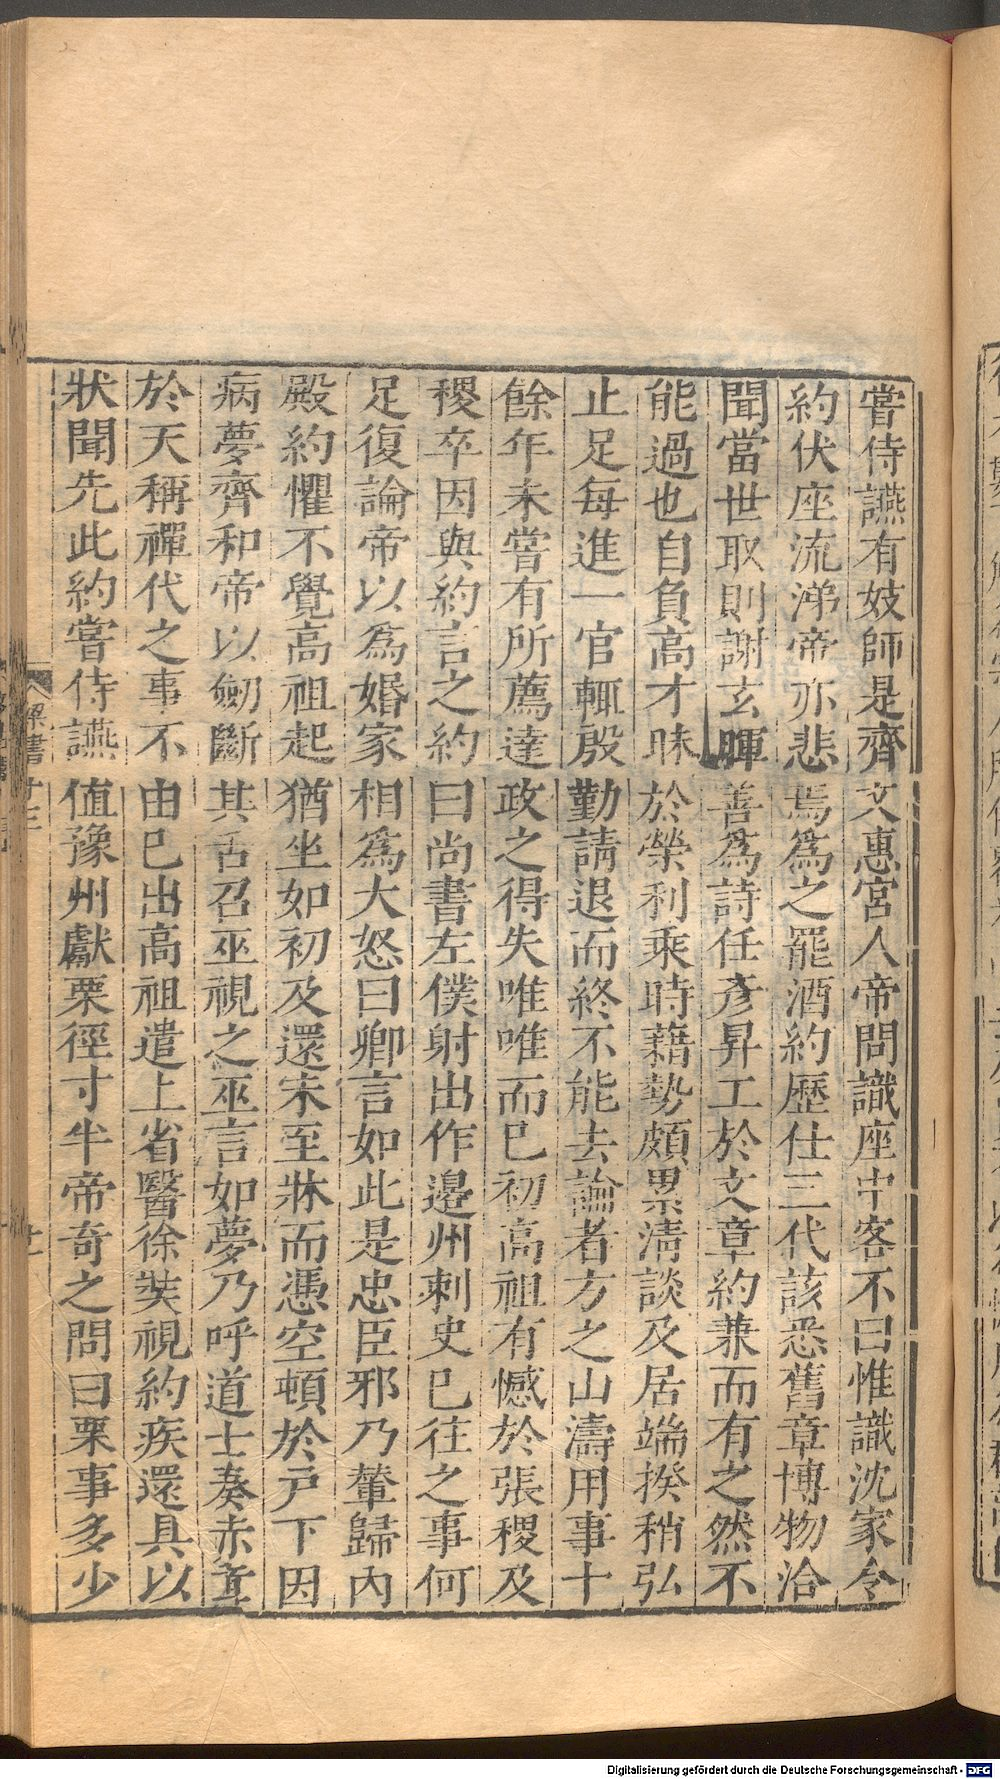 嘗侍讌有妓師是齊文惠宮人帝問識座中客不曰惟識沈家令
約伏座流涕帝亦悲焉為之罷酒約歷仕三代該悉舊章博物洽
聞當世取則謝玄暉善為詩任彥昇工於文章約兼而有之然不
能過也自負高才昧於榮利乘時藉勢頗累清談及居端揆稍弘
止足每進一官輒殷勤請退而終不能去論者方之山濤用事十
餘年未嘗有所薦達政之得失唯唯而已初高祖有憾於張稷及
稷卒因與約言之約曰尚書左僕射出作邊州刺史已往之事何
足復論帝以為婚家相為大怒曰卿言如此是忠臣邪乃輦歸內
殿約懼不覺高祖起猶坐如初及還未至牀而憑空頓於戶下因
病夢齊和帝以劒斷其舌召巫視之巫言如夢乃呼道士奏赤章
於天稱禪代之事不由已出高祖遣上省醫徐奘視約疾還具以
狀聞先此約嘗侍讌值豫州獻栗徑寸半帝奇之問曰栗事多少
梁書 十三
十一
Digitalisierung gefördert durch die Deutsche Forschungsgemeinschaft - DFG